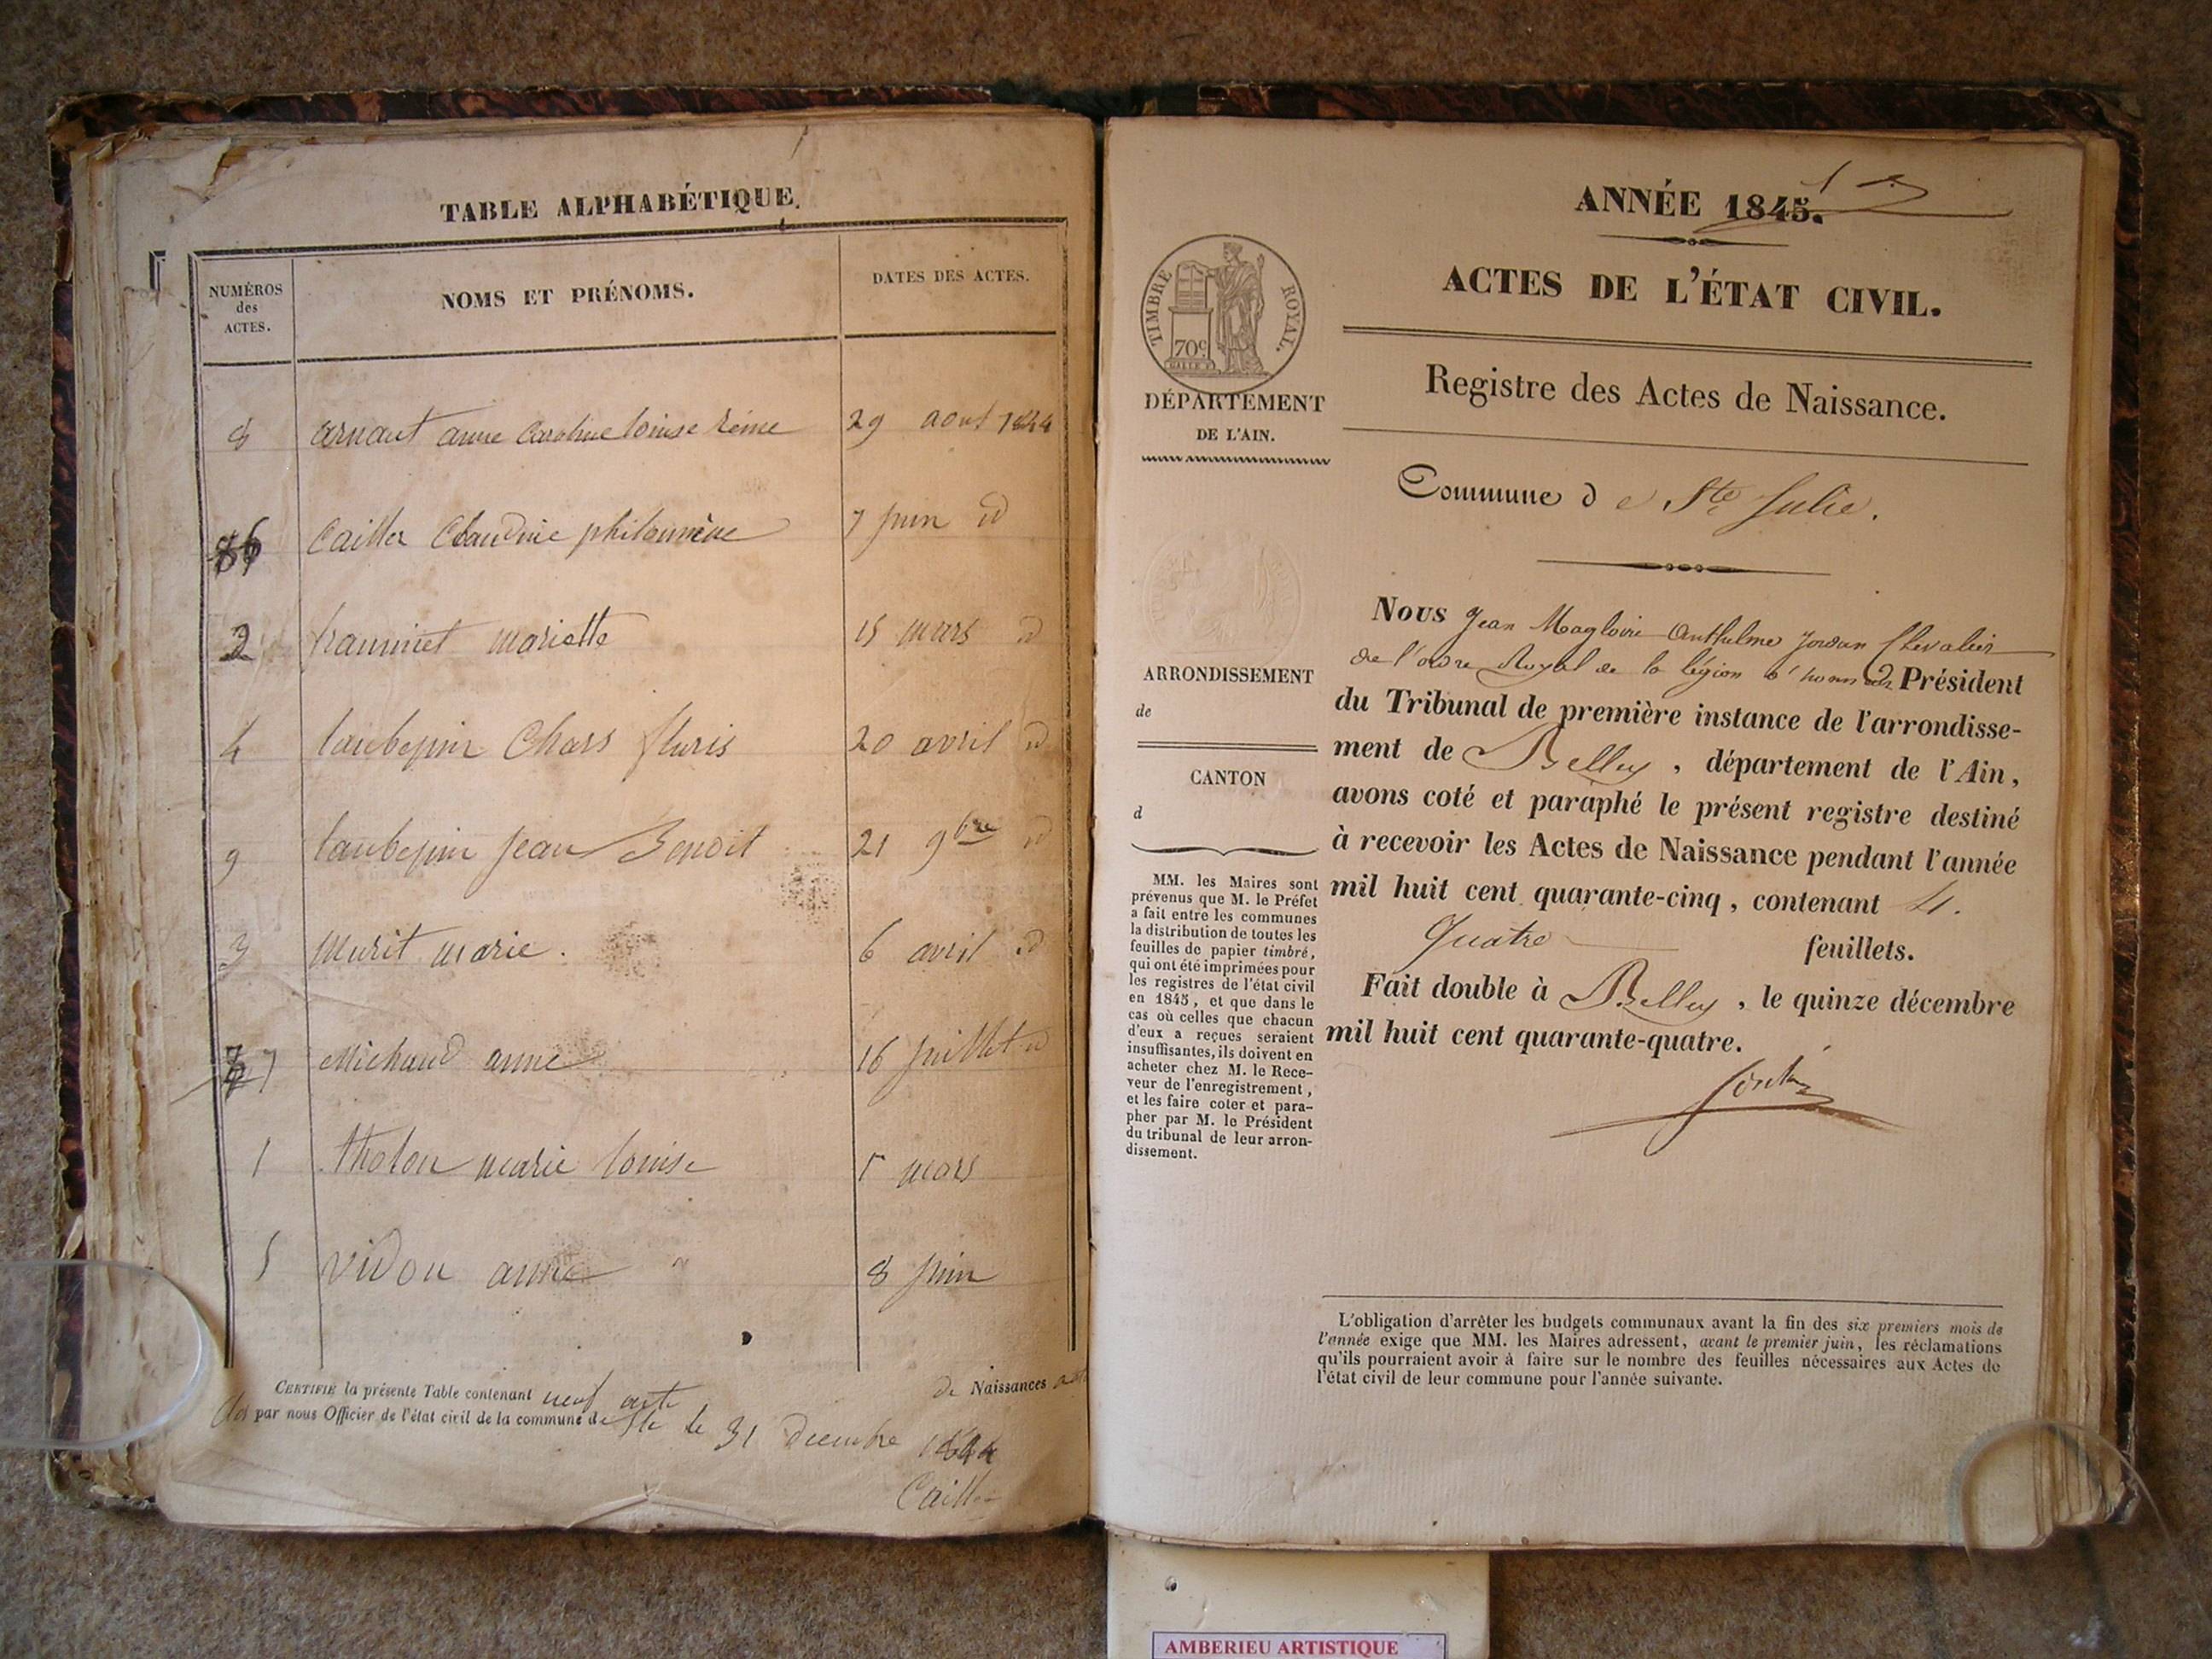 TABLE ALPHABÉTIQUE.
NUMÉROS
des
ACTES.
NOMS ET PRÉNOMS.
DATES DES ACTES.
8 arnaut anne Caroline louise 29 aout 1844
6 Cailler Claudine philomène 7 juin id
2 mariette 15 mars id
4 laubepin Chars fluris 20 avril id
9 laubepin jean Benoit 21 9bre id
3 Murit marie. 6 avril id
7 Michaud anne 16 juillet id
1 tholon marie louise 5 mars
5 vidon anne 8 juin
CERTIFIÉ la présente Table contenant neuf acte de Naissances
par nous Officier de l'état civil de la commune de Ste le 31 décembre 1844
Cailler
ANNÉE 1845.
ACTES DE L'ÉTAT CIVIL.
Registre des Actes de Naissance.
TIMBRE ROYAL.
70c
DÉPARTEMENT
DE L'AIN.
Commune de Ste Julie.
Nous Jean Magloire Anthelme Jordan Chevalier
de l'ordre Royal de la légion d'honneur Président
du Tribunal de première instance de l'arrondisse-
ment de Belley, département de l'Ain,
avons coté et paraphé le présent registre destiné
à recevoir les Actes de Naissance pendant l'année
mil huit cent quarante-cinq, contenant 4.
Quatre feuillets.
Fait double à Belley, le quinze décembre
mil huit cent quarante-quatre.
Jordan
ARRONDISSEMENT
de
CANTON
d
MM. les Maires sont
prévenus que M. le Préfet
a fait entre les communes
la distribution de toutes les
feuilles de papier timbré,
qui ont été imprimées pour
les registres de l'état civil
en 1845, et que dans le
cas où celles que chacun
d'eux a reçues seraient
insuffisantes, ils doivent en
acheter chez M. le Rece-
veur de l'enregistrement,
et les faire coter et para-
pher par M. le Président
du tribunal de leur arron-
dissement.
L'obligation d'arrêter les budgets communaux avant la fin des six premiers mois de
l'année exige que MM. les Maires adressent, avant le premier juin, les réclamations
qu'ils pourraient avoir à faire sur le nombre des feuilles nécessaires aux Actes de
l'état civil de leur commune pour l'année suivante.
AMBERIEU ARTISTIQUE